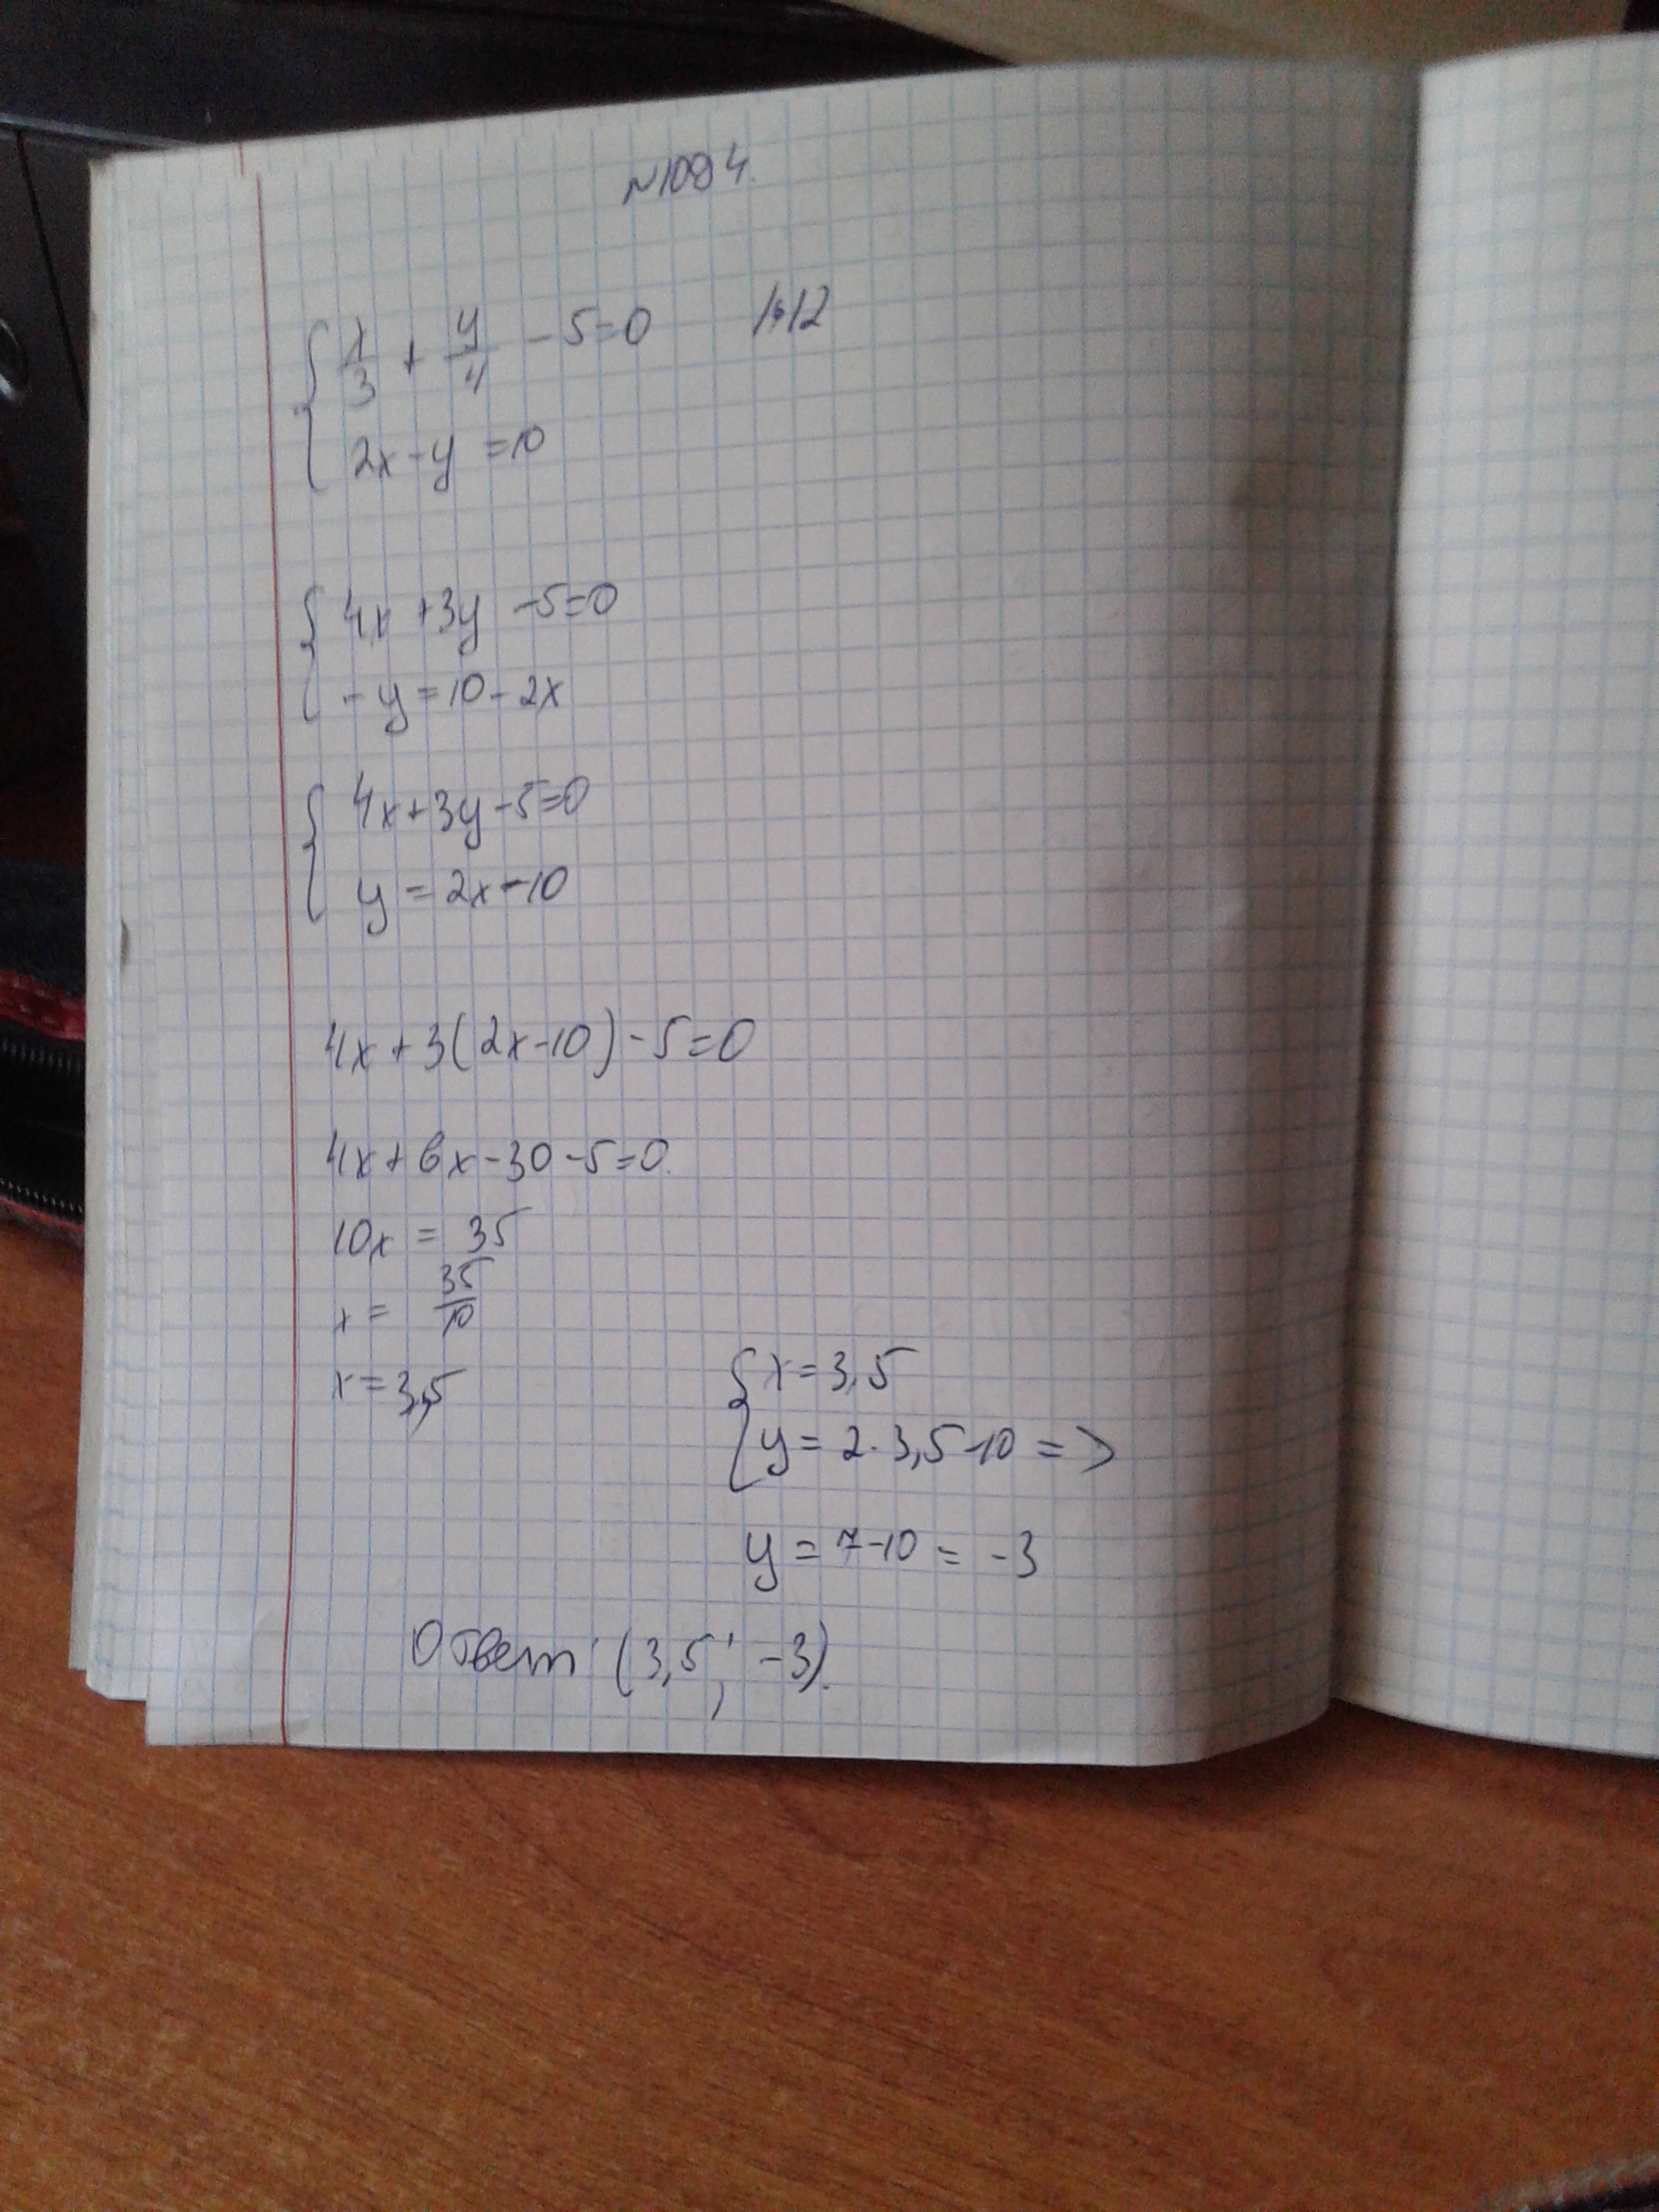 №1084.
{ x/3 + y/4 - 5=0 |·12
2x-y =10
{ 4x +3y -5=0
-y=10-2x
{ 4x+3y-5=0
y=2x-10
4x+3(2x-10)-5=0
4x+6x-30-5=0.
10x = 35
x= 35/10
x=3,5
{ x=3,5
y=2·3,5-10 =>
y=7-10=-3
Ответ: (3,5; -3).